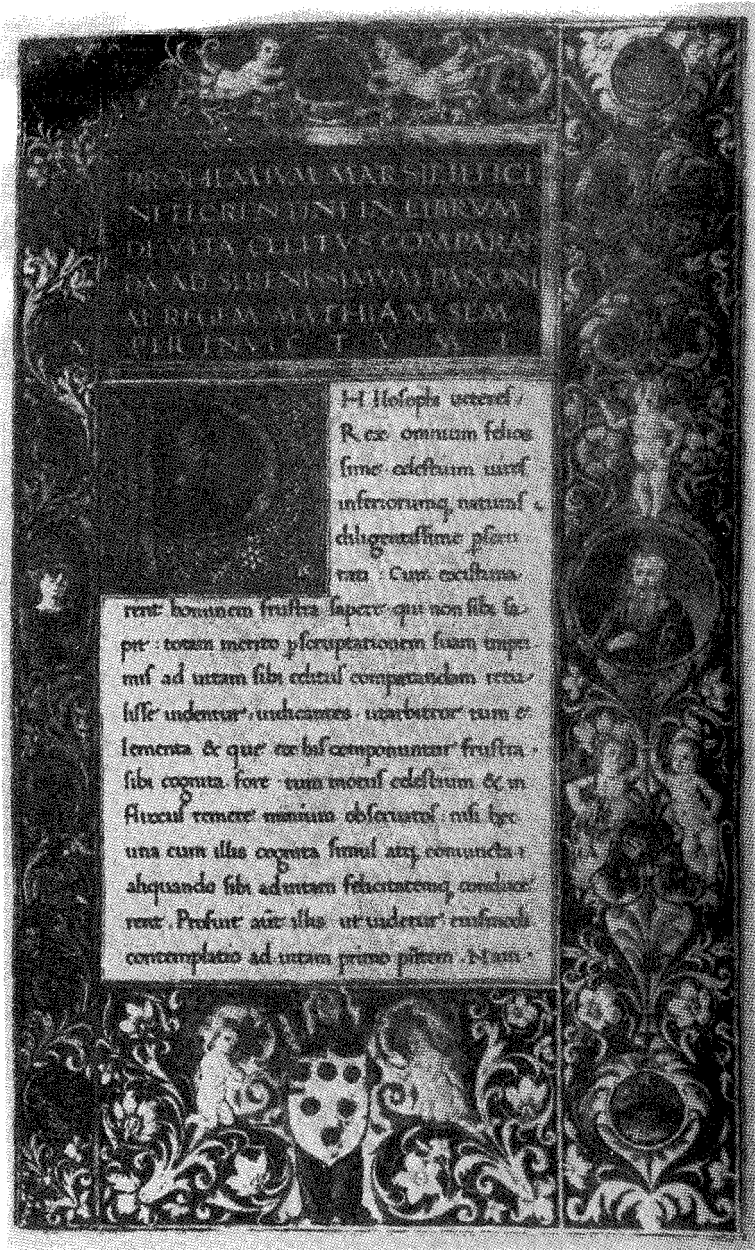 PROHEMIVM MARSILII FICI
NI FLORENTINI IN LIBRVM
DE VITA CELITVS COMPARAN
DA AD SERENISSIMVM PANONI
AE REGEM MATHIAM SEM
PER INVIC T V M I
HI losophi ueteres /
Rex omnium felicis
sime celestium uires
inferiorumq naturas
diligentissime pscru
tati : Cum existima
rent hominem frustra sapere qui non sibi sa
pit : totam merito pscruptationem suam impri
mis ad uitam sibi celitus comparandam retu
lisse uidentur : iudicantes ut arbitror tum e
lementa & que ex his componuntur frustra
sibi cognita fore tum motus celestium & in
fluxus temere nimium obseruatos : nisi hec
una cum illis cognita simul atq coniuncta
aliquando sibi ad uitam felicitatemq conduce
rent . Profuit aut illis ut uidetur eiusmodi
contemplatio ad uitam primo pñtem . Nam